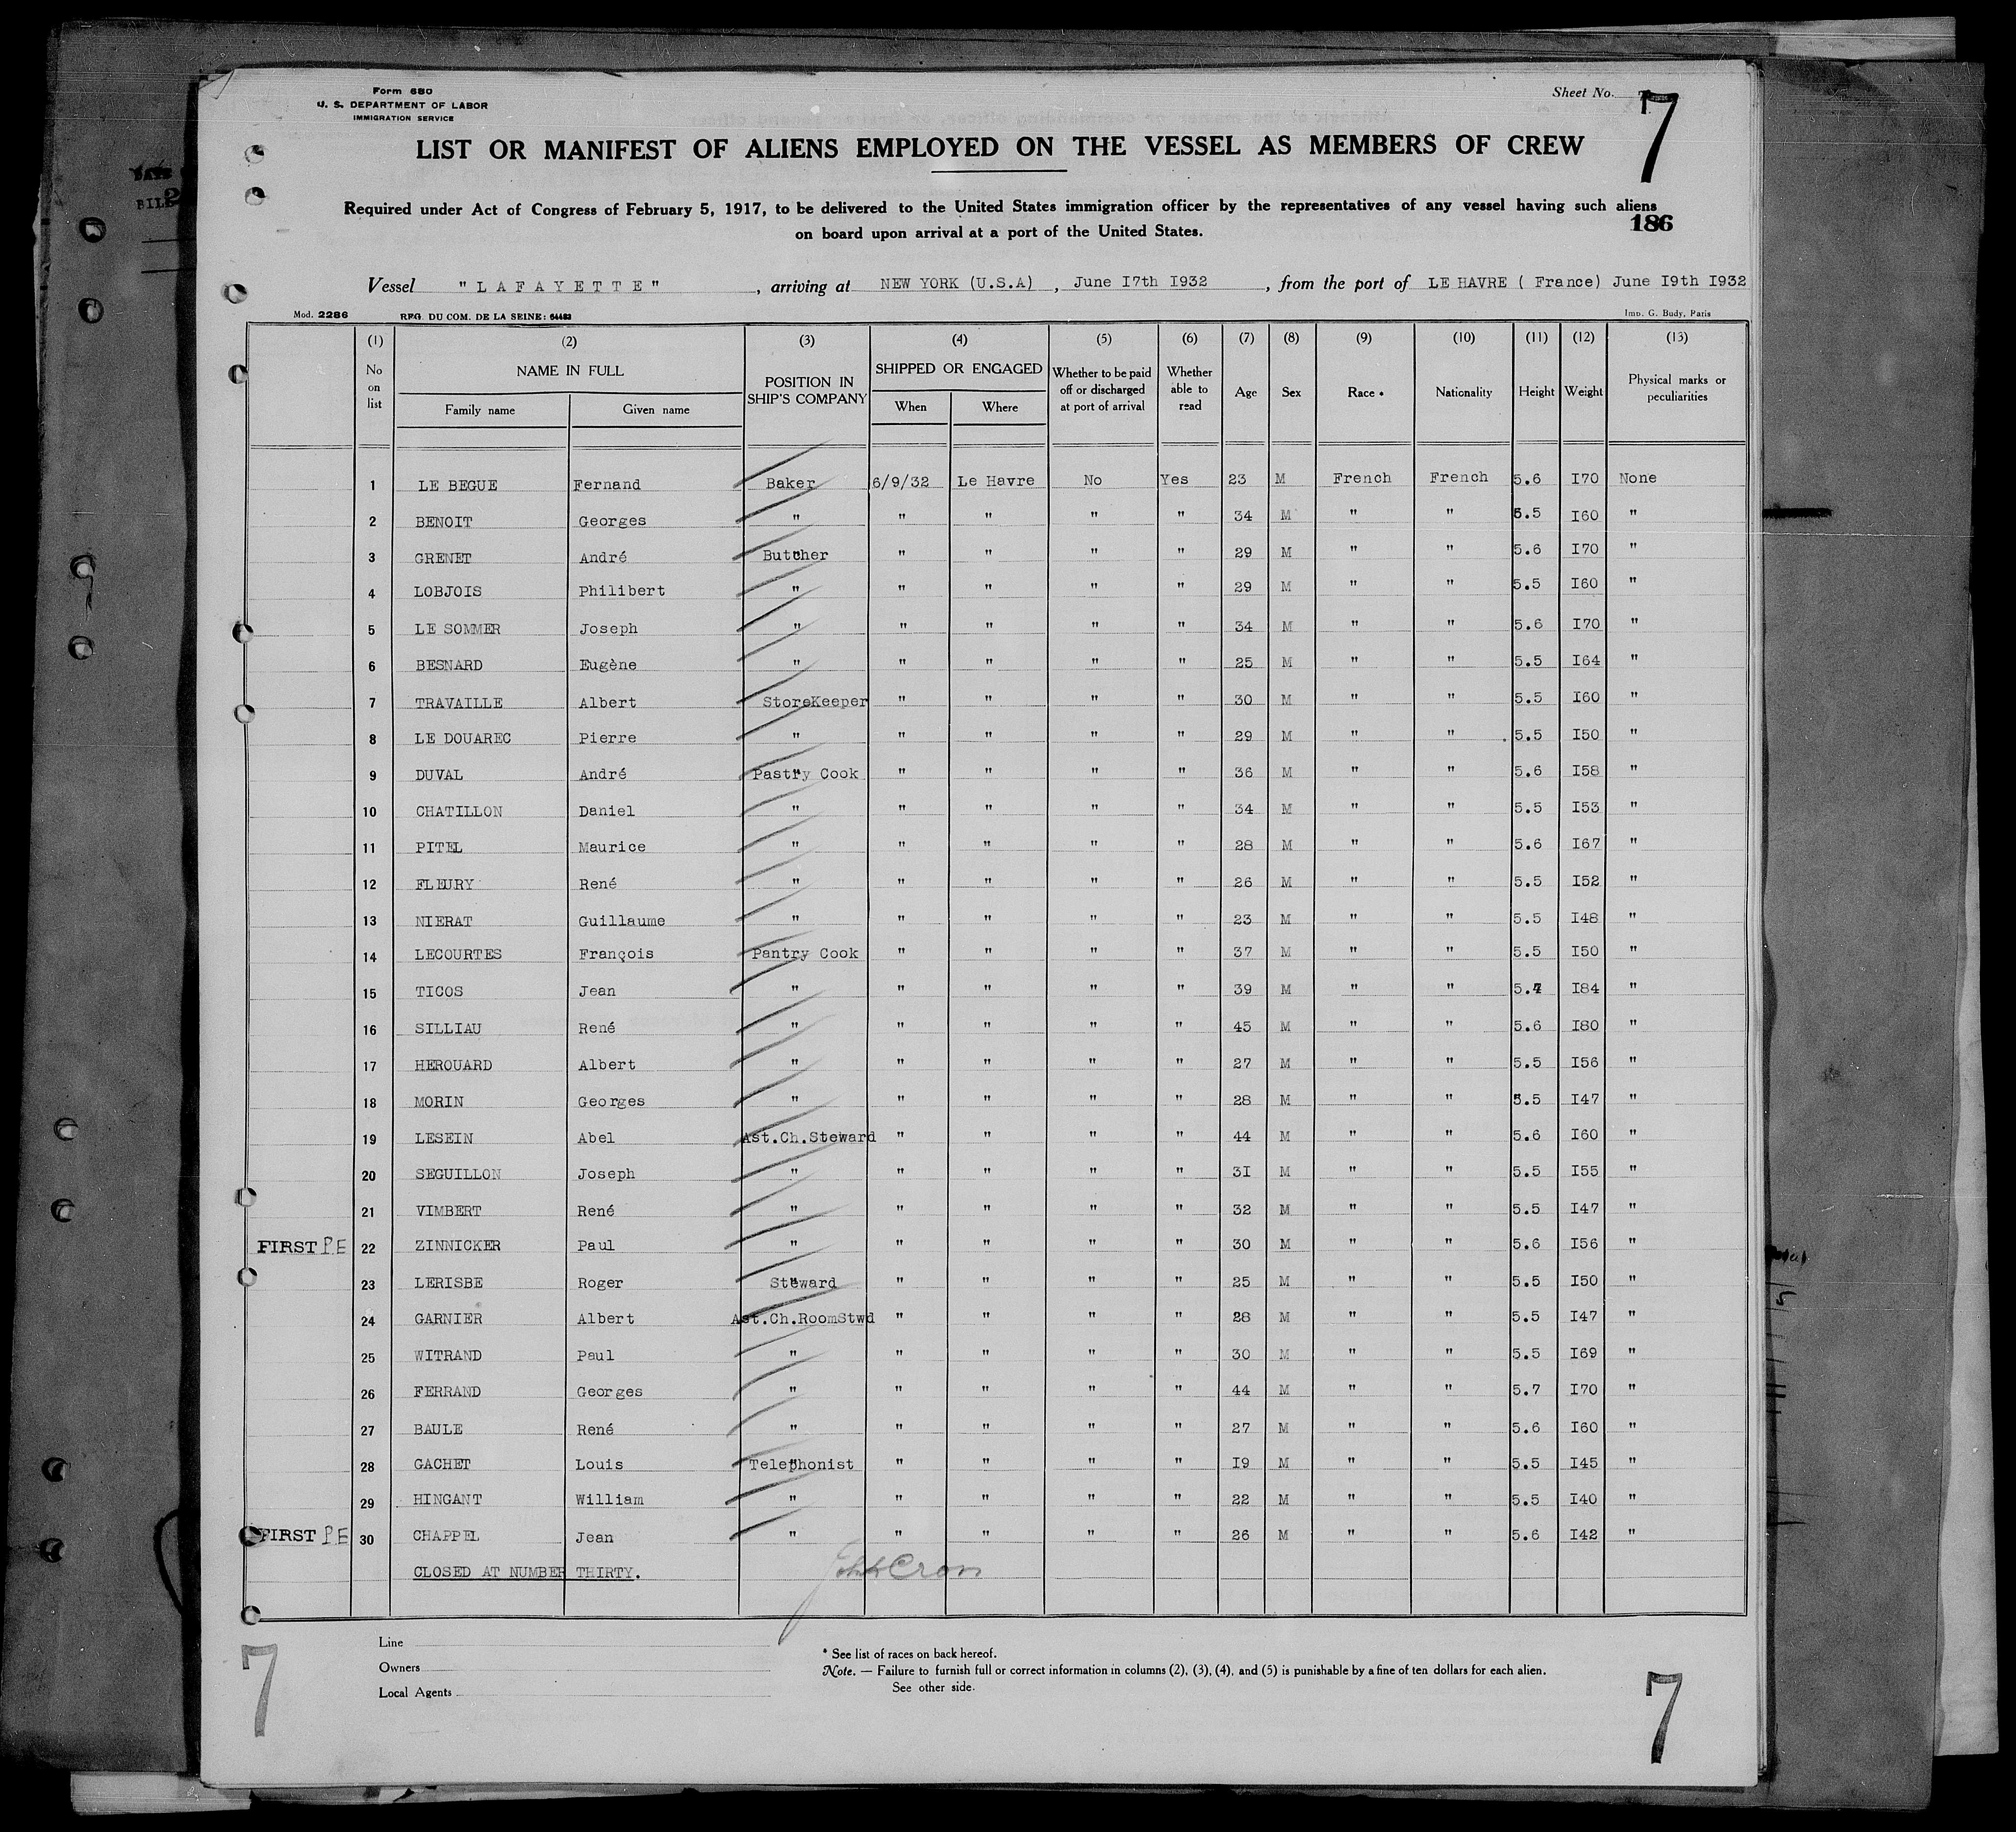 Form 680
U. S. DEPARTMENT OF LABOR
IMMIGRATION SERVICE
Sheet No. 7
LIST OR MANIFEST OF ALIENS EMPLOYED ON THE VESSEL AS MEMBERS OF CREW
Required under Act of Congress of February 5, 1917, to be delivered to the United States immigration officer by the representatives of any vessel having such aliens
on board upon arrival at a port of the United States.
186
Vessel "LAFAYETTE", arriving at NEW YORK (U.S.A), June I7th I932, from the port of LE HAVRE ( France) June I9th I932
Mod. 2286 REG. DU COM. DE LA SEINE: 64483 Imp. G. Budy, Paris
(1) (2) (3) (4) (5) (6) (7) (8) (9) (10) (11) (12) (13)
No on list NAME IN FULL Family name Given name POSITION IN SHIP'S COMPANY SHIPPED OR ENGAGED When Where Whether to be paid off or discharged at port of arrival Whether able to read Age Sex Race * Nationality Height Weight Physical marks or peculiarities
1 LE BEGUE Fernand Baker 6/9/32 Le Havre No Yes 23 M French French 5.6 I70 None
2 BENOIT Georges " " " " " 34 M " " 5.5 I60 "
3 GRENET André Butcher " " " " 29 M " " 5.6 I70 "
4 LOBJOIS Philibert " " " " " 29 M " " 5.5 I60 "
5 LE SOMMER Joseph " " " " " 34 M " " 5.6 I70 "
6 BESNARD Eugène " " " " " 25 M " " 5.5 I64 "
7 TRAVAILLE Albert StoreKeeper " " " " 30 M " " 5.5 I60 "
8 LE DOUAREC Pierre " " " " " 29 M " " 5.5 I50 "
9 DUVAL André Pastry Cook " " " " 36 M " " 5.6 I58 "
10 CHATILLON Daniel " " " " " 34 M " " 5.5 I53 "
11 PITEL Maurice " " " " " 28 M " " 5.6 I67 "
12 FLEURY René " " " " " 26 M " " 5.5 I52 "
13 NIERAT Guillaume " " " " " 23 M " " 5.5 I48 "
14 LECOURTES François Pantry Cook " " " " 37 M " " 5.5 I50 "
15 TICOS Jean " " " " " 39 M " " I84 "
16 SILLIAU René " " " " " 45 M " " 5.6 I80 "
17 HEROUARD Albert " " " " " 27 M " " 5.5 I56 "
18 MORIN Georges " " " " " 28 M " " 5.5 I47 "
19 LESEIN Abel Ast.Ch.Steward " " " " 44 M " " 5.6 I60 "
20 SEGUILLON Joseph " " " " " 3I M " " 5.5 I55 "
21 VIMBERT René " " " " " 32 M " " 5.5 I47 "
FIRST PE 22 ZINNICKER Paul " " " " " 30 M " " 5.6 I56 "
23 LERISBE Roger Steward " " " " 25 M " " 5.5 I50 "
24 GARNIER Albert Ast.Ch.RoomStwd " " " " 28 M " " 5.5 I47 "
25 WITRAND Paul " " " " " 30 M " " 5.5 I69 "
26 FERRAND Georges " " " " " 44 M " " 5.7 I70 "
27 BAULE René " " " " " 27 M " " 5.6 I60 "
28 GACHET Louis Telephonist " " " " I9 M " " 5.5 I45 "
29 HINGANT William " " " " " 22 M " " 5.5 I40 "
FIRST PE 30 CHAPPEL Jean " " " " " 26 M " " 5.6 I42 "
CLOSED AT NUMBER THIRTY.
Cron
Line
Owners
Local Agents
* See list of races on back hereof.
Note. — Failure to furnish full or correct information in columns (2), (3), (4), and (5) is punishable by a fine of ten dollars for each alien.
See other side.
7
7